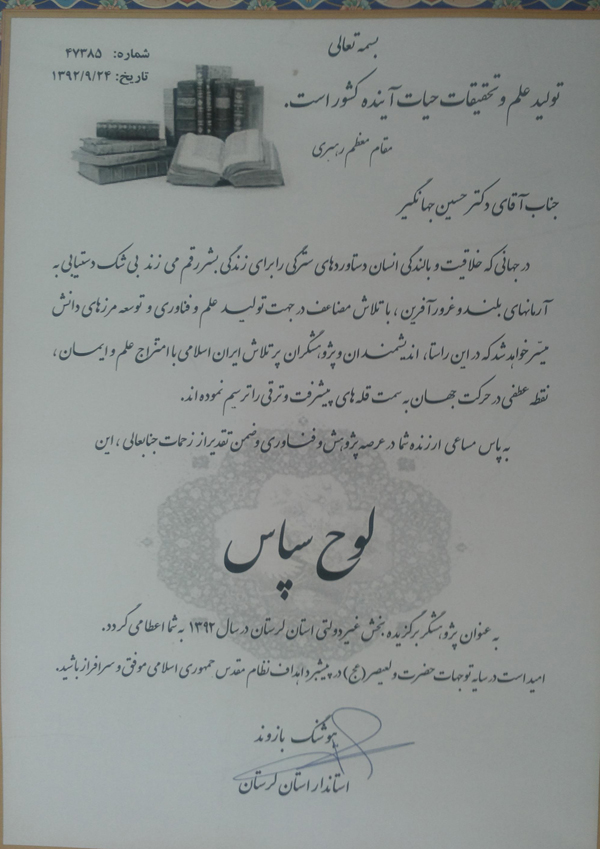 بسمه تعالی
شماره: ۴۷۳۸۵
تاریخ: ۱۳۹۲/۹/۲۴
تولید علم و تحقیقات حیات آینده کشور است.
مقام معظم رهبری
جناب آقای دکتر حسین جهانگیر
در جهانی که خلاقیت و بالندگی انسان دستاوردهای سترگی را برای زندگی بشر رقم می زند بی شک دستیابی به
آرمانهای بلند و غرور آفرین ، با تلاش مضاعف در جهت تولید علم و فناوری و توسعه مرزهای دانش
میسّر خواهد شد که در این راستا، اندیشمندان و پژوهشگران پرتلاش ایران اسلامی با امتزاج علم و ایمان ،
نقطه عطفی در حرکت جهان به سمت قله های پیشرفت و ترقی را ترسیم نموده اند.
به پاس مساعی ارزنده شما در عرصه پژوهش و فناوری و ضمن تقدیر از زحمات جنابعالی ، این
لوح سپاس
به عنوان پژوهشگر برگزیده بخش غیردولتی استان لرستان در سال ۱۳۹۲ به شما اعطا می گردد.
امید است در سایه توجهات حضرت ولیعصر (عج) در پیشبرد اهداف نظام مقدس جمهوری اسلامی موفق و سرافراز باشید.
هوشنگ بازوند
استاندار استان لرستان